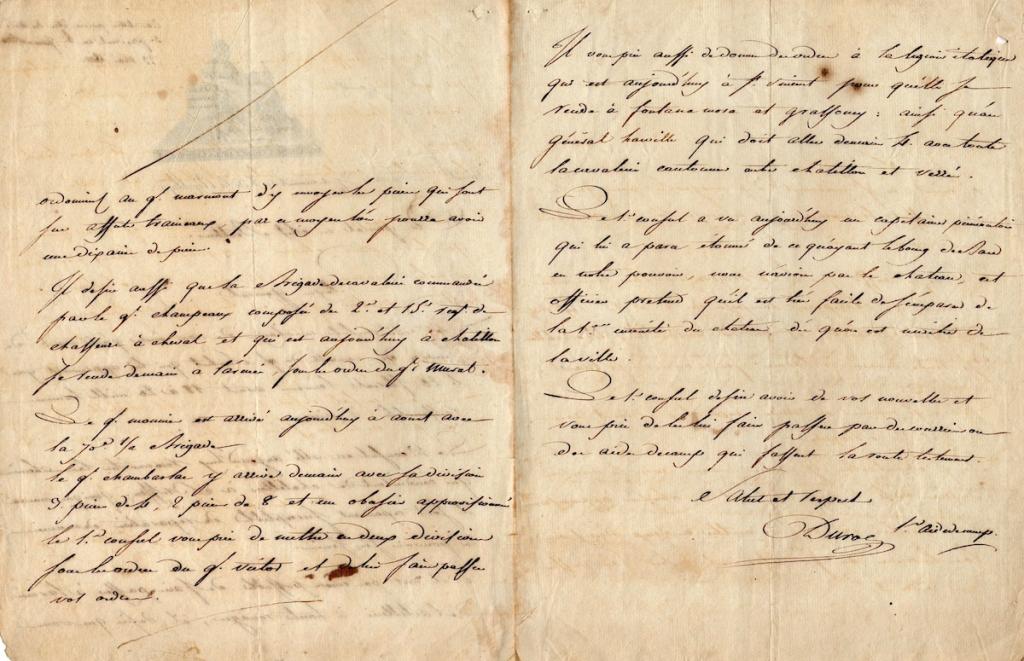 ordonniez au gl. marmont d'y envoyer les pieces qui sont
sur affuts traineaux par ce moyen lon pourra avoir
une dixaine de pieces.
Il desire aussi que la Brigade de cavalerie commandée
par le gl. champeaux composée du 2e. et 15e. regt. de
chasseurs à cheval et qui est aujourd'huy à chatillon
se rende demain à l'armée, sous les ordres du gl. Murat.
Le gl. monnier est arrivé aujourd'huy à aoust avec
la 70e 1/2 Brigade
le gl. chambarlhac y arrive demain avec sa division
3 pieces de 4, 2 pieces de 8 et un obusier approvisionnés
le 1er. consul vous prie de mettre ces deux divisions
sous les ordres du gl. victor et de lui faire passer
vos ordres.
Il vous prie aussi de donner des ordres à la legion italique
qui est aujourd'huy à St. vincent pour qu'elle se
rende à fontane mora et grassoney : ainsi qu'au
général harville qui doit aller demain 4. avec toute
la cavalerie cantonner entre chatillon et verrés.
Le 1er. consul a vu aujourd'huy un capitaine piémontais
qui lui a paru étonné de ce qu'ayant le bourg de Bard
en notre pouvoir, nous n'avions pas le chateau, cet
officier pretend qu'il est très facile de s'emparer de
la 1ere. enceinte du chateau dès qu'on est maitre de
la ville.
Le 1er. consul desire avoir de vos nouvelles et
vous prie de les lui faire passer par des courriers ou
des aides de camp qui fassent la route lestement.
Salut et respect
Duroc 1er. aide de camp.